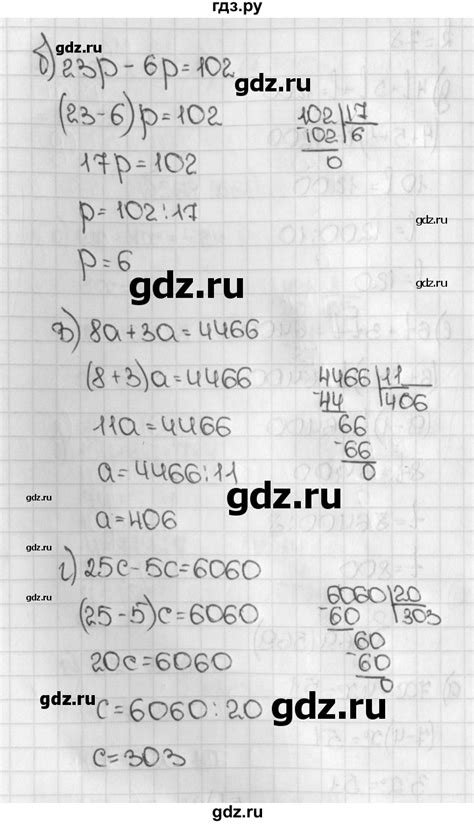 гдз.ру
gdz.ru
б) 23p - 6p = 102
gdz.ru
(23-6)p = 102
102 | 17
-102 | 6
0
17p = 102
gdz.ru
p = 102 : 17
p = 6
gdz.ru
в) 8a + 3a = 4466
(8+3)a = 4466
4466 | 11
44 | 406
11a = 4466
66
-66
0
a = 4466 : 11
gdz.ru
gdz.ru
a = 406
gdz.ru
г) 25c - 5c = 6060
6060 | 20
-60 | 303
(25-5)c = 6060
60
-60
0
20c = 6060
gdz.ru
c = 6060 : 20
gdz.ru
c = 303
gdz.ru
gdz.ru